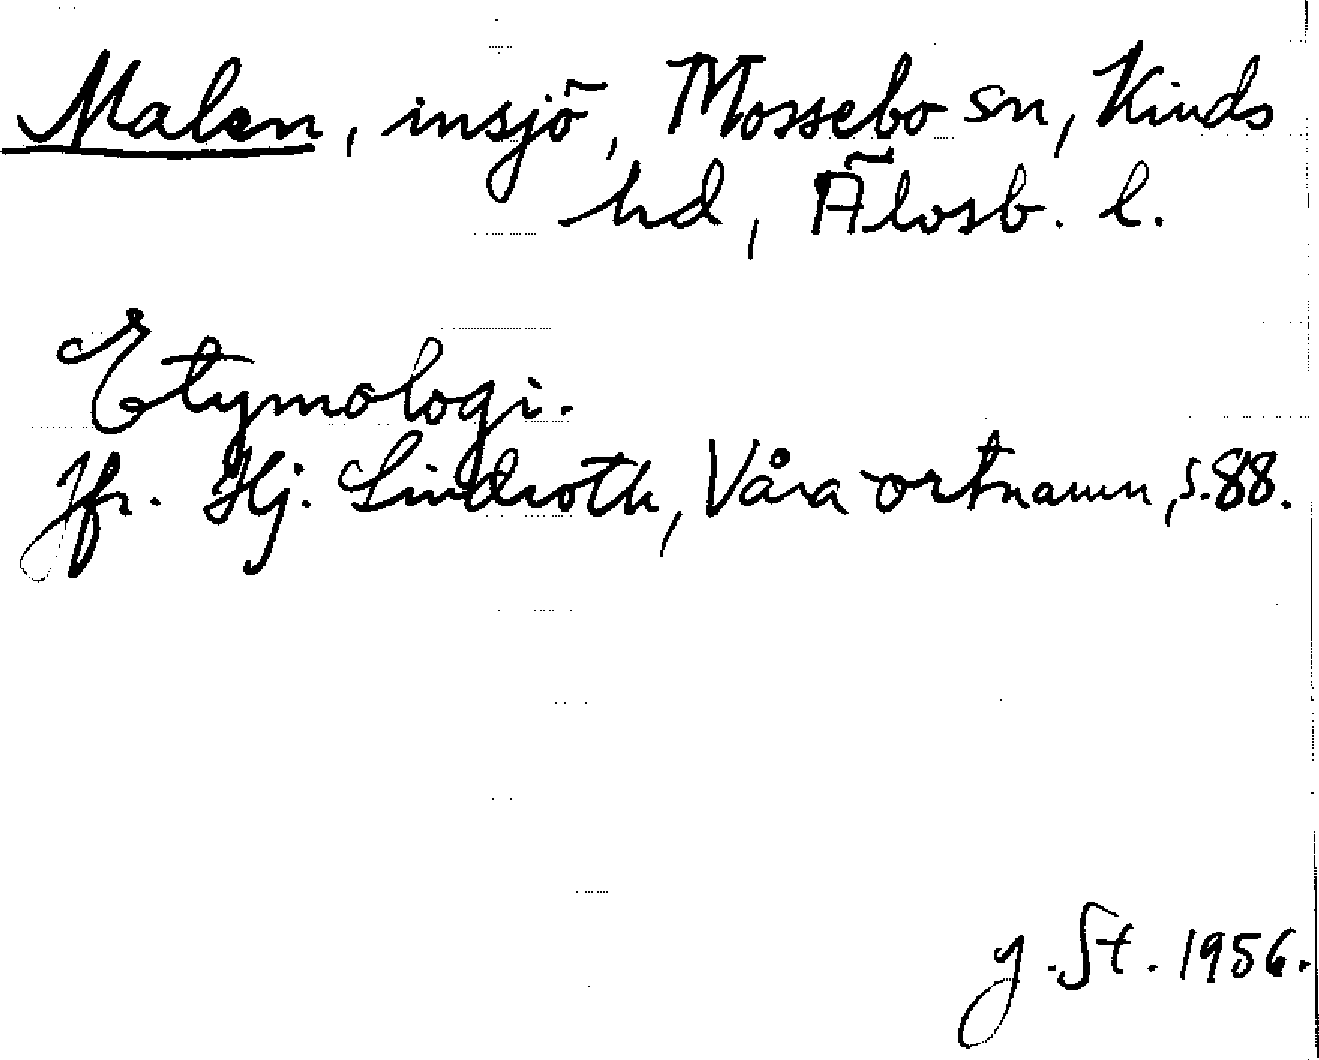 Malen, insjö, Mossebo sn, Kinds
hd, Älvsb. l.
Etymologi.
Jfr. Hj. Lindroth, Våra ortnamn, s. 88.
J. St. 1956.